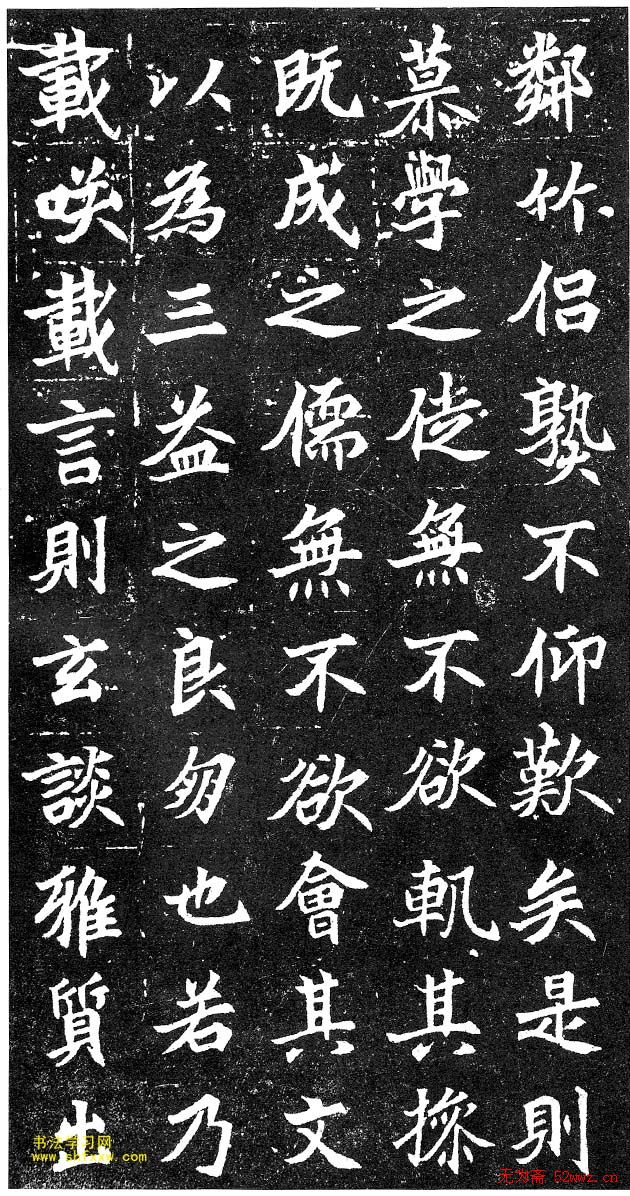 鄰竹侶熟不仰歎矣是則
慕學之徒無不欲軌其操
既成之儒無不欲會其文
以為三益之良朋也若乃
載咲載言則玄談雅質出
书法学习网
无为斋 52wwz.cn